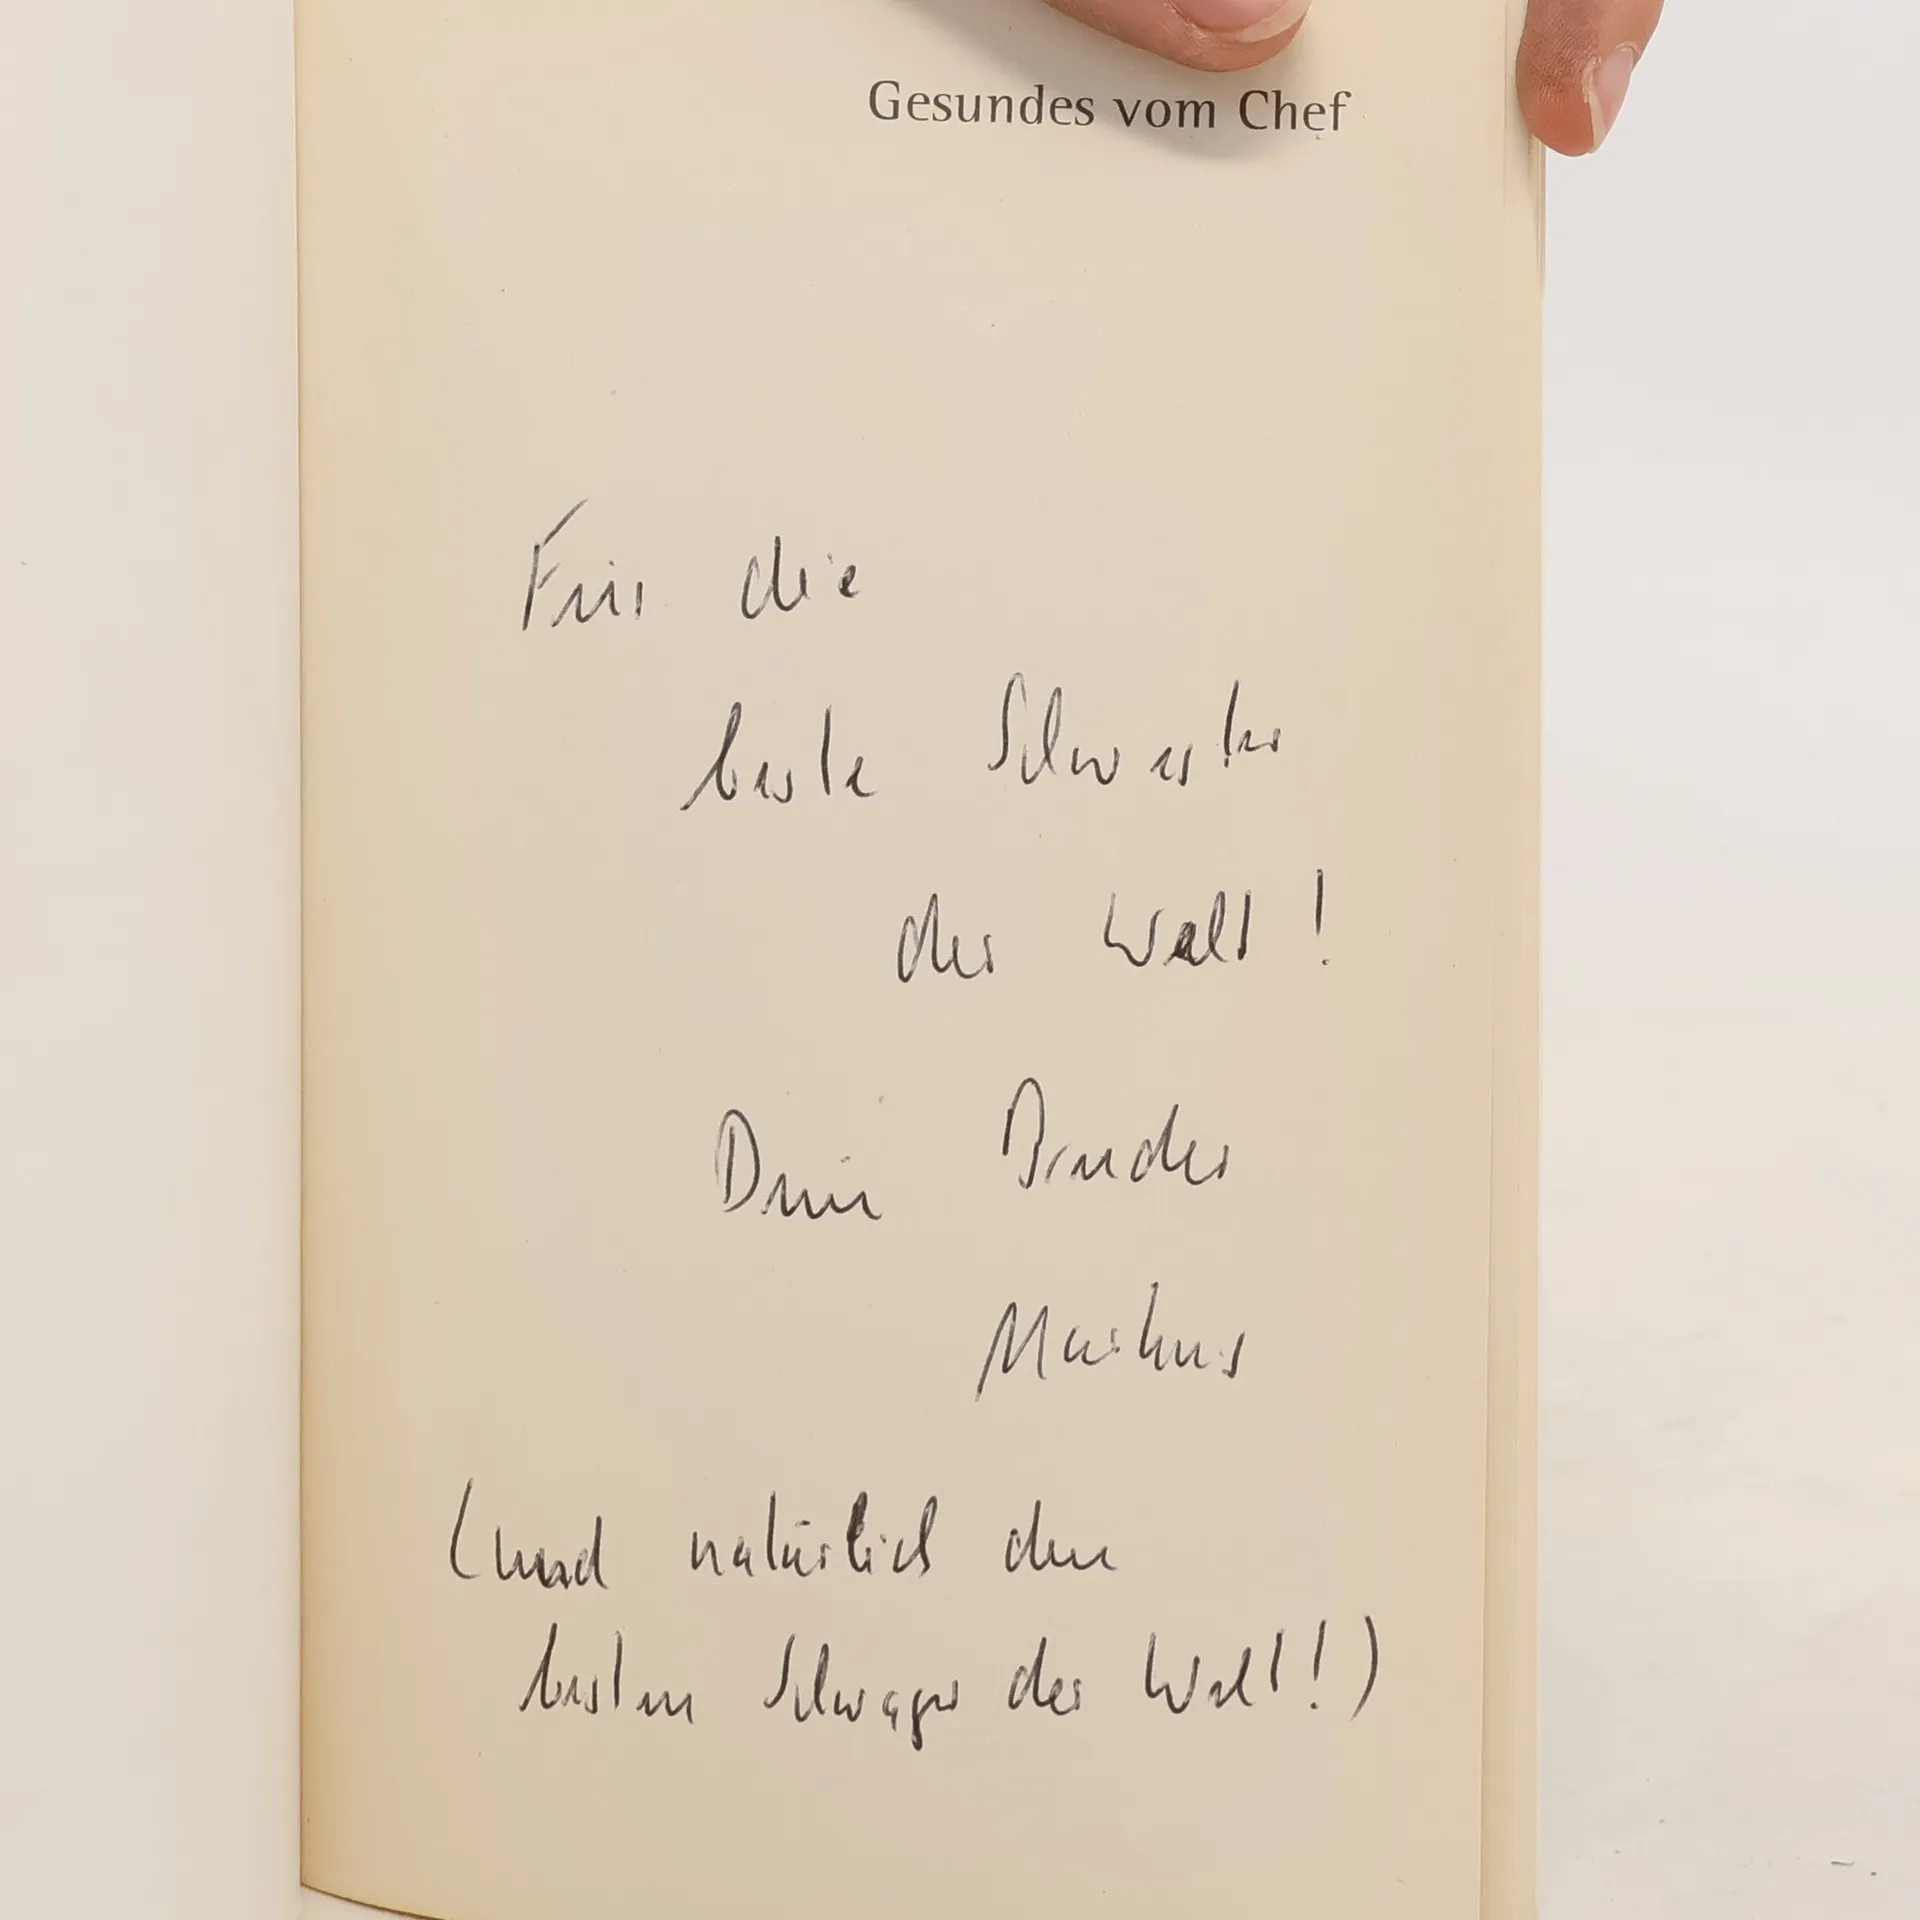 Gesundes vom Chef
Für die
beste Schwester
der Welt!
Dein Bruder
Markus
(und natürlich den
besten Schwager der Welt!)